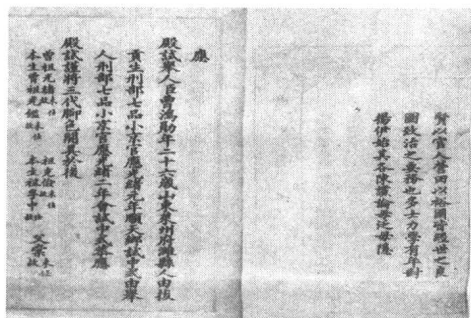 賢以官人營田以裕國皆經世之良
圖政治之要務也多士力學有年對
揚伊始其各陳讜論毋泛毋隱
應
殿試舉人臣曹鴻勛年二十六歲山東萊州府濰縣人由拔
貢生刑部七品小京官應光緒元年順天鄉試中式由舉
人刑部七品小京官應光緒二年會試中式今應
殿試謹將三代腳色開具於後
曾祖光 未仕 祖光 未仕 父 未仕故
本生曾祖光 未仕故 本生祖孝中